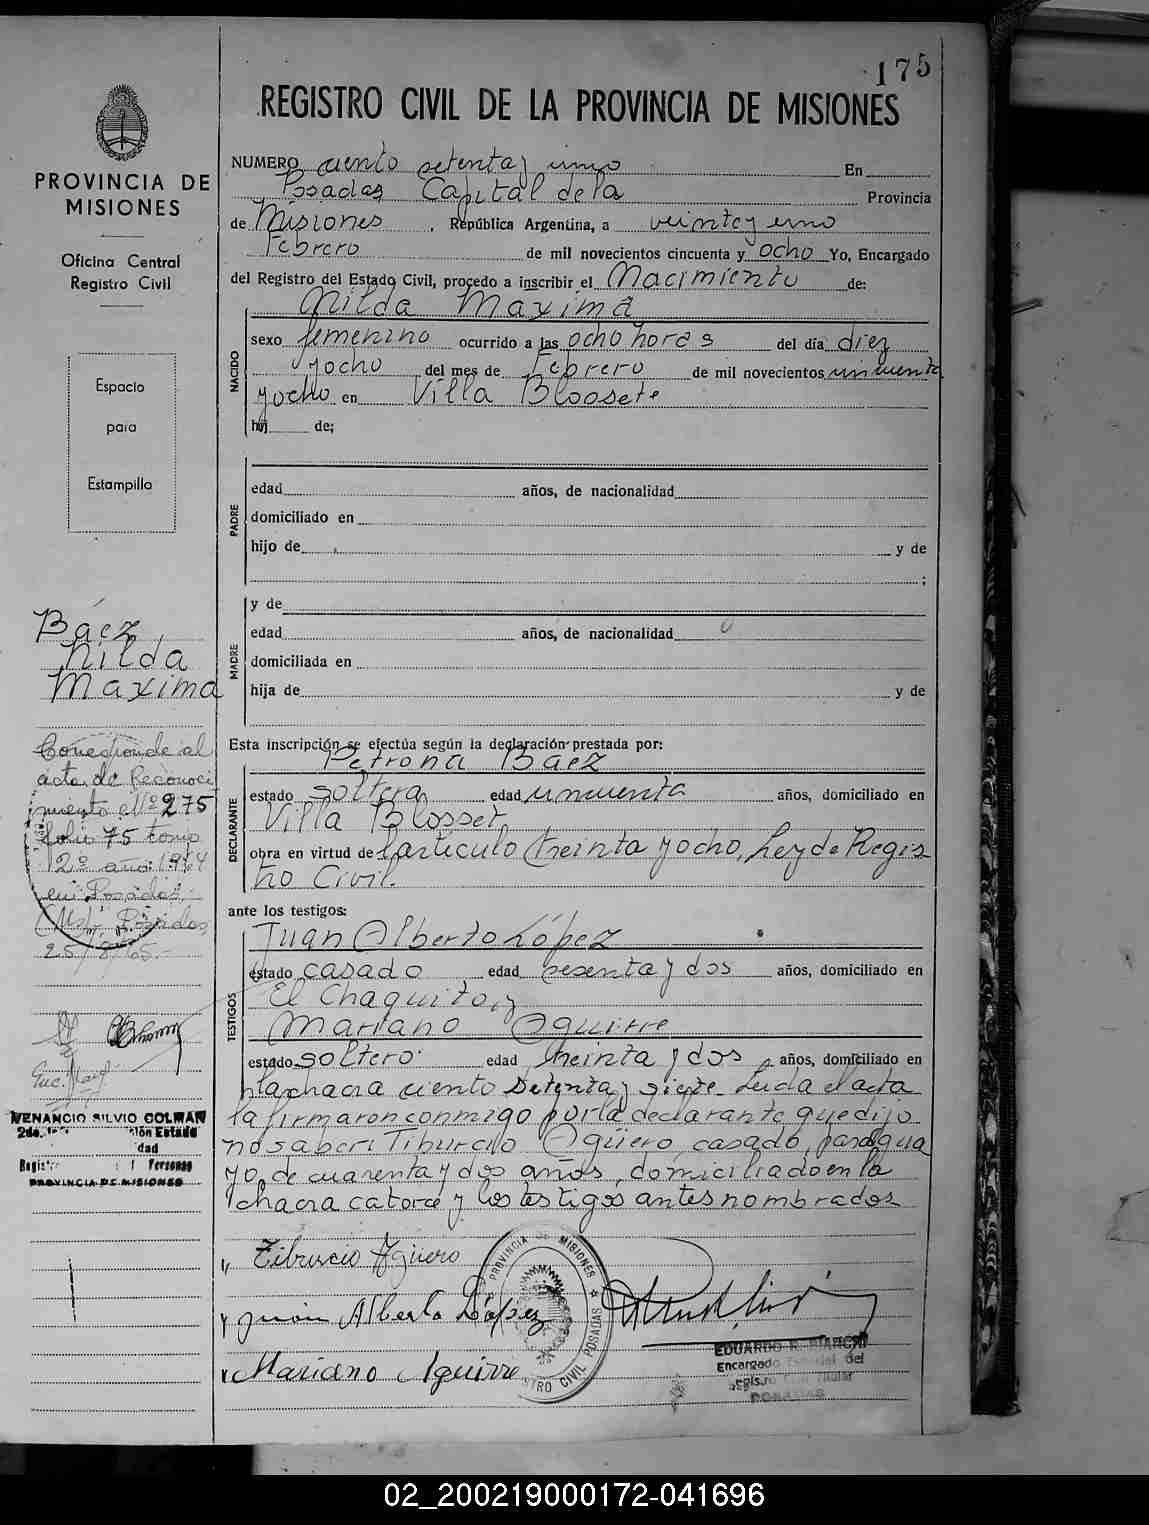 175
REGISTRO CIVIL DE LA PROVINCIA DE MISIONES
PROVINCIA DE
MISIONES
Oficina Central
Registro Civil
Espacio
para
Estampilla
NUMERO ciento setenta y uno En
Posadas Capital de la Provincia
de Misiones, República Argentina, a veinte y uno
Febrero de mil novecientos cincuenta y ocho Yo, Encargado
del Registro del Estado Civil, procedo a inscribir el Nacimiento de:
Nilda Maxima
NACIDO
sexo femenino ocurrido a las ocho horas del día diez
y ocho del mes de Febrero de mil novecientos cincuenta
y ocho en Villa Bloosete
hij de;
PADRE
edad años, de nacionalidad
domiciliado en
hijo de y de
;
MADRE
y de
edad años, de nacionalidad
domiciliada en
hija de y de
Esta inscripción se efectúa según la declaración prestada por:
DECLARANTE
Petrona Baez
estado soltera edad cincuenta años, domiciliado en
Villa Blosset
obra en virtud del articulo treinta y ocho, Ley de Regis
tro Civil.
ante los testigos:
TESTIGOS
Juan Alberto López
estado casado edad sesenta y dos años, domiciliado en
El Chaquito, y
Mariano Aguirre
estado soltero edad treinta y dos años, domiciliado en
la chacra ciento setenta y siete. Leida el acta
la firmaron conmigo por la declarante que dijo
no saber: Tiburcio Agüero, casado, paragua
yo, de cuarenta y dos años, domiciliado en la
chacra catorce y los testigos antes nombrados
Tibrucio Agüero
Juan Alberto López
Mariano Aguirre
PROVINCIA DE MISIONES
REGISTRO CIVIL POSADAS
EDUARDO R. BIANCHI
Encargado del
POSADAS
Báez
Nilda
Maxima
Corresponde al
acta de Reconoci
miento Nº 275
folio 75 tomo
2º año 1964
en Posadas,
Posadas,
25/8/65.-
VENANCIO SILVIO COLMAN
PROVINCIA DE MISIONES
02_200219000172-041696